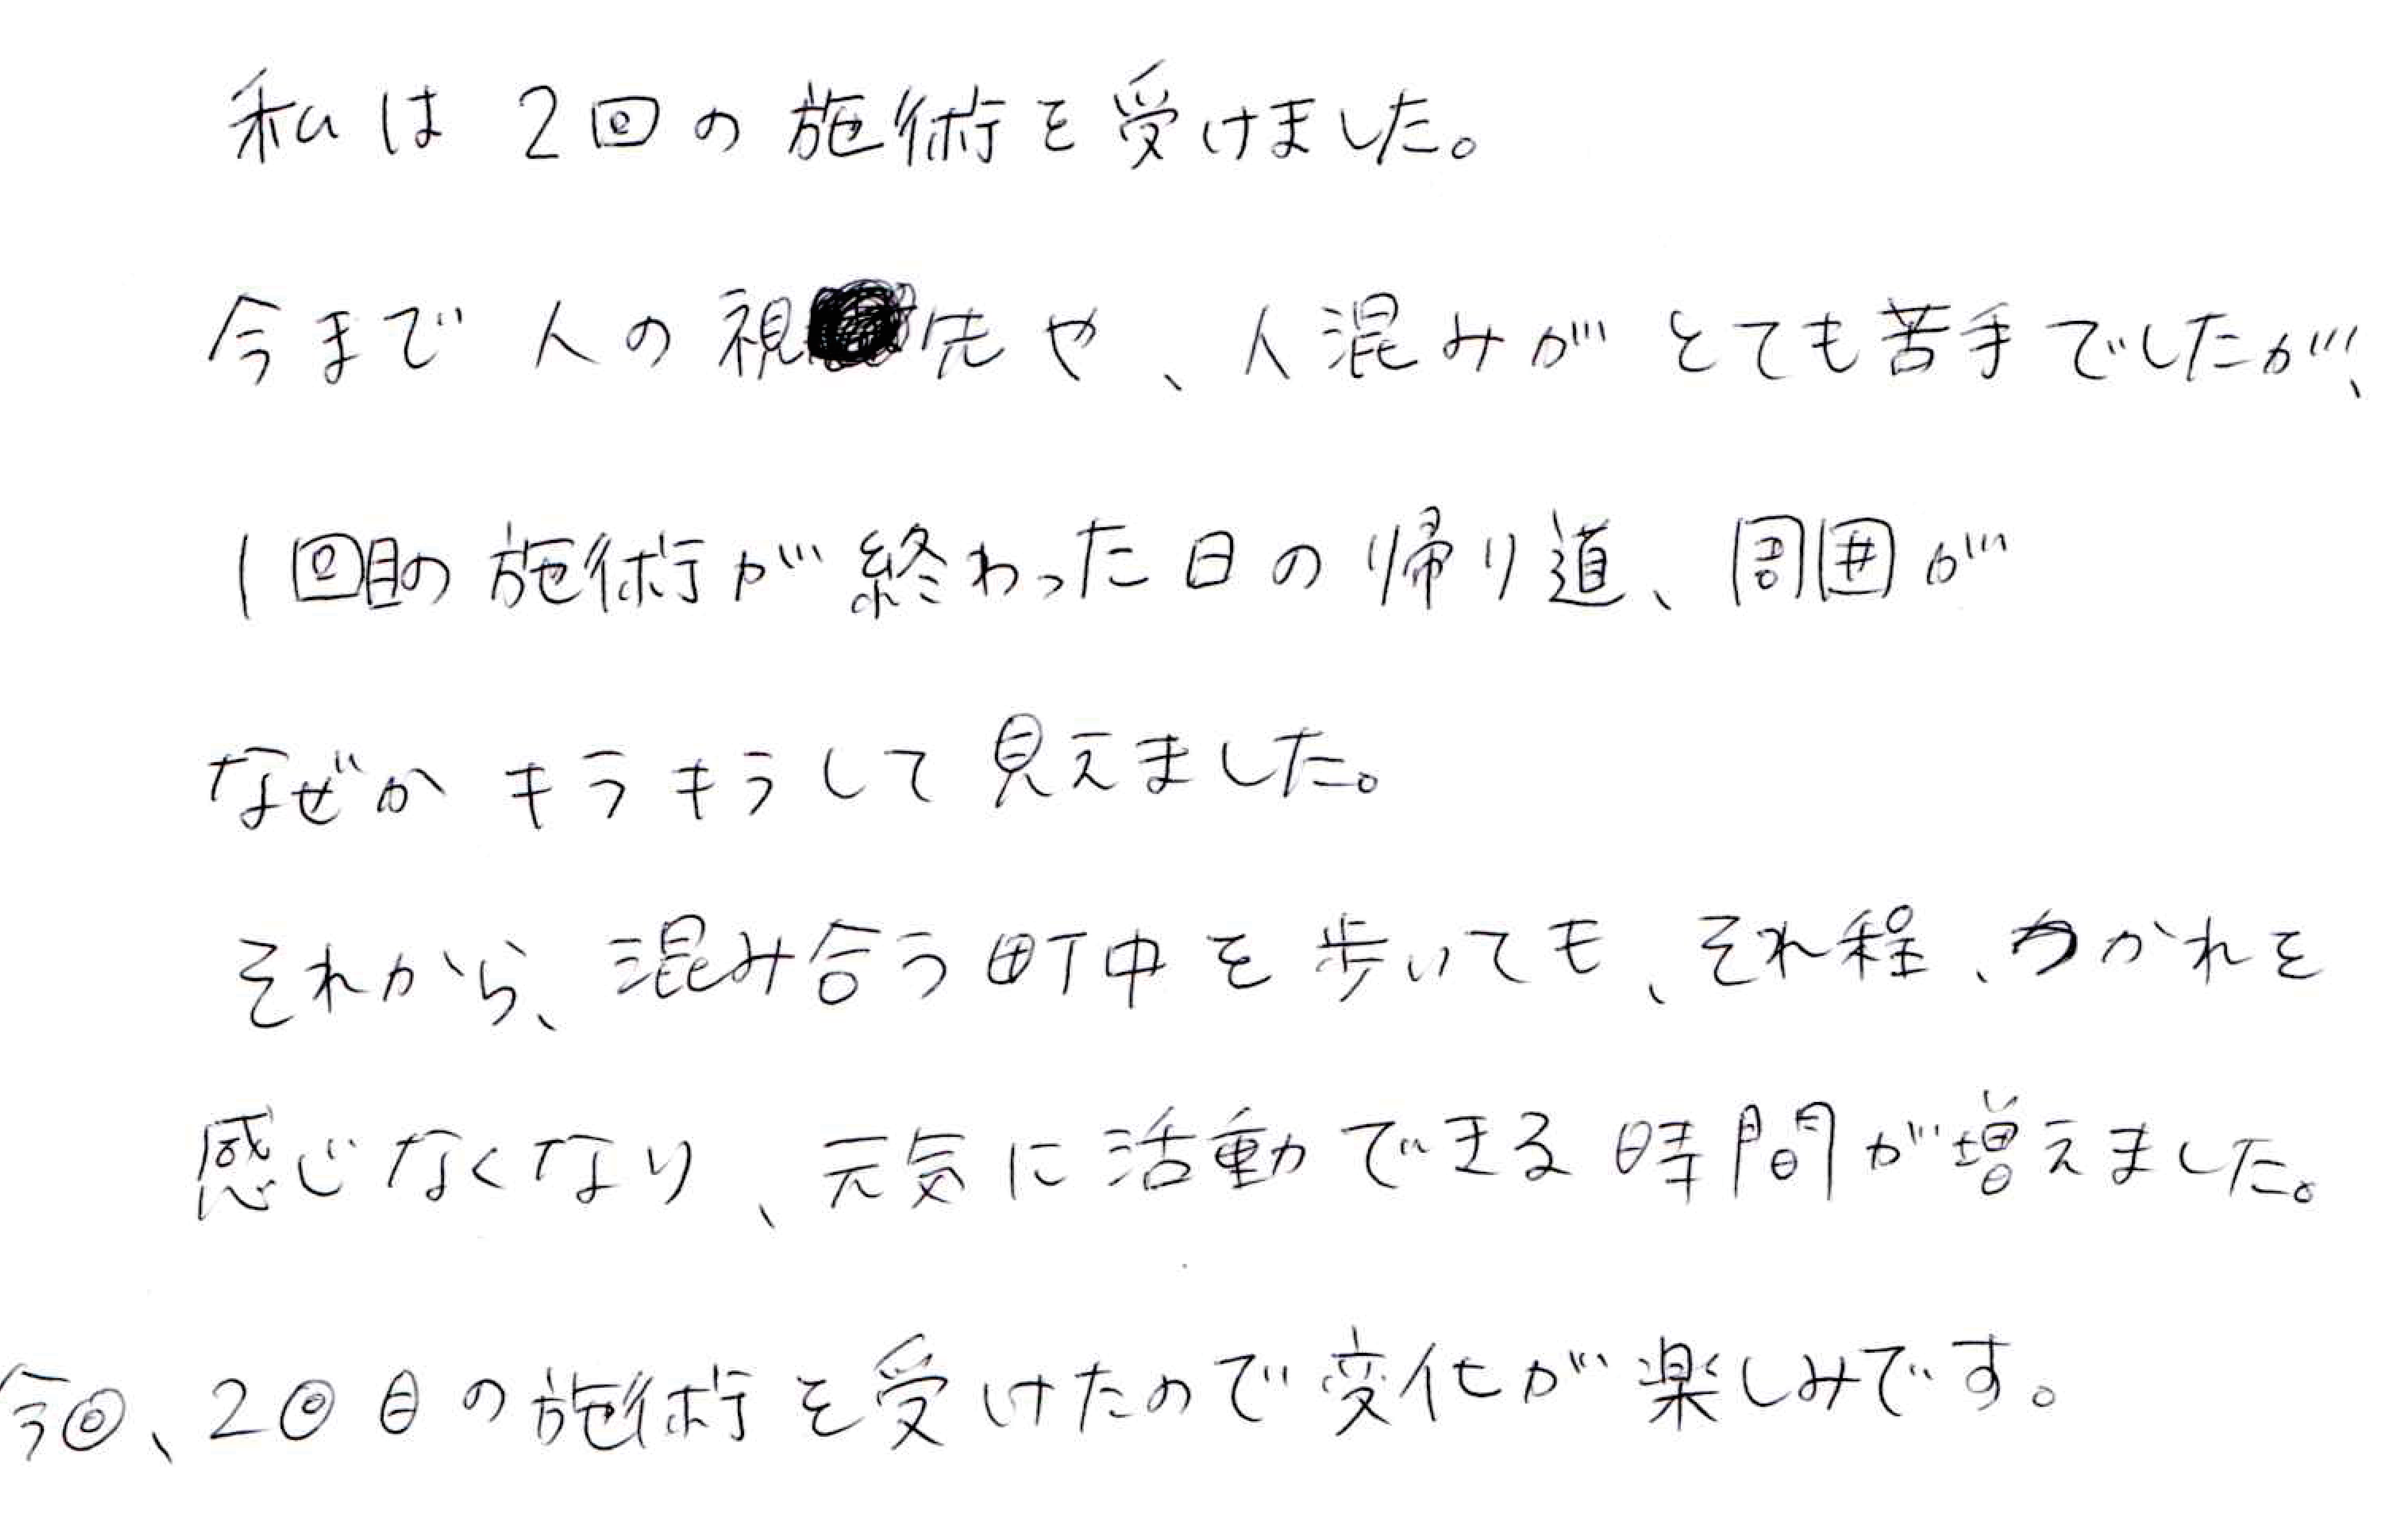 私は2回の施術を受けました。
今まで人の視先や、人混みがとても苦手でしたが、
1回目の施術が終わった日の帰り道、周囲が
なぜかキラキラして見えました。
それから、混み合う町中を歩いても、それ程、つかれを
感じなくなり、元気に活動できる時間が増えました。
今回、2回目の施術を受けたので変化が楽しみです。